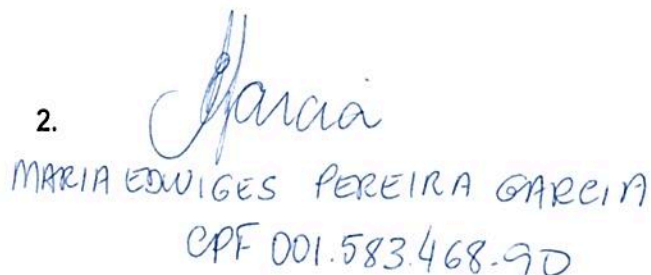 2. Garcia
MARIA EDWIGES PEREIRA GARCIA
CPF 001.583.468-90